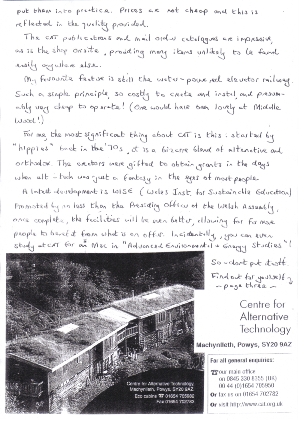 put them into practice. Prices are not cheap and this is
reflected in the quality provided.
The CAT publications and mail order catalogues are impressive,
as is the shop onsite, providing many items unlikely to be found
easily anywhere else.
My favourite factor is still the water-powered elevator railway.
Such a simple principle, so costly to create and instal, and presum-
ably very cheap to operate! (One would have been lovely at Middle
Wood!)
For me the most significant thing about CAT is this: started by
"hippies" back in the '70s, it is a bizarre blend of alternative and
orthodox. The creators were gifted to obtain grants in the days
when alt-tech was just a fantasy in the eyes of most people.
A latest development is WISE (Wales Inst. for Sustainable Education)
Promoted by no less than the Presiding Officer of the Welsh Assembly,
once complete, the facilities will be even better, allowing far more
people to benefit from what is on offer. Incidentally, you can even
study at CAT for an MSc in "Advanced Environmental & Energy Studies"!
So - don't put it off
Find out for yourself
- page three -
Centre for
Alternative
Technology
Machynlleth, Powys, SY20 9AZ
For all general enquiries:
our main office
on 0845 330 8355 (UK)
00 44 (0)1654 705950
Or fax us on 01654 702782
Or visit http://www.cat.org.uk
Centre for Alternative Technology
Machynlleth, Powys, SY20 9AZ
Eco cabins ☎ 01654 705980
Fax 01654 702782